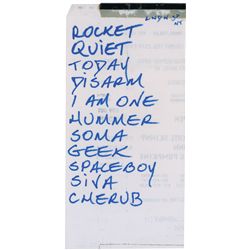 ROCKET
QUIET
TODAY
DISARM
I AM ONE
HUMMER
SOMA
GEEK
SPACEBOY
SIVA
CHERUB